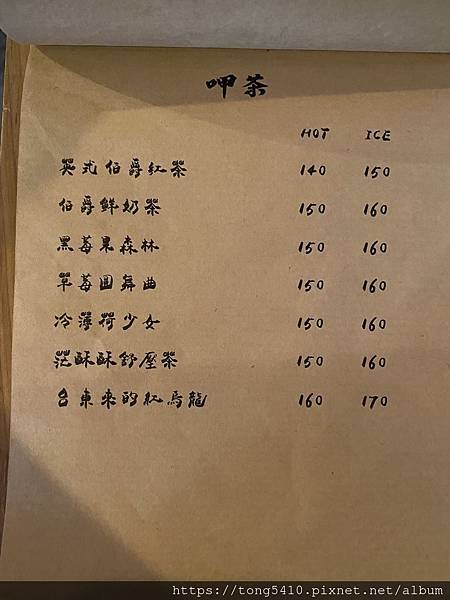 呷茶
HOT ICE
英式伯爵红茶 140 150
伯爵鮮奶茶 150 160
黑莓果森林 150 160
草莓圓舞曲 150 160
冷薄荷少女 150 160
茫酥酥舒壓茶 150 160
台東來的紅烏龍 160 170
https://tong5410.pixnet.net/album